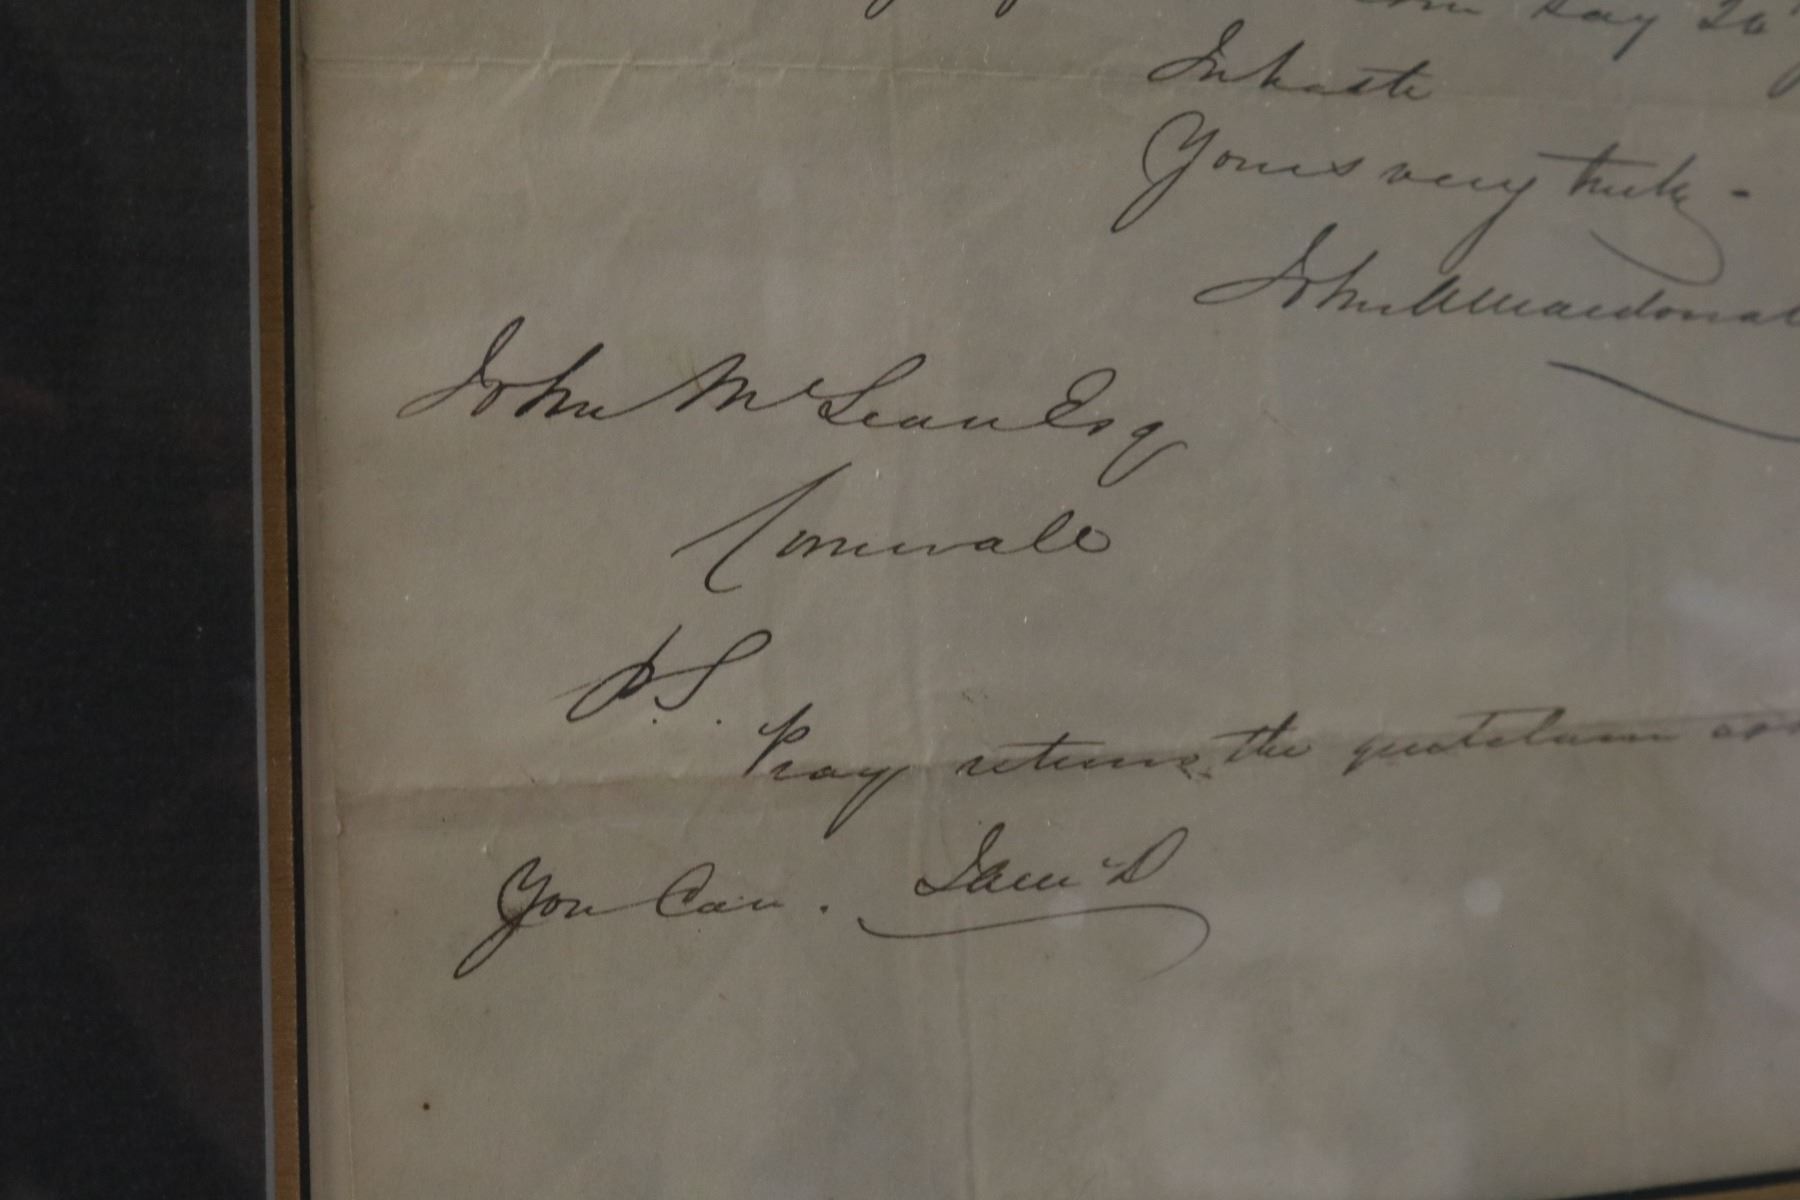 say 26
In haste
Yours very truly -
John A Macdonal
John McLean Esq
Cornwall
P.S.
Pray return the
You Can.